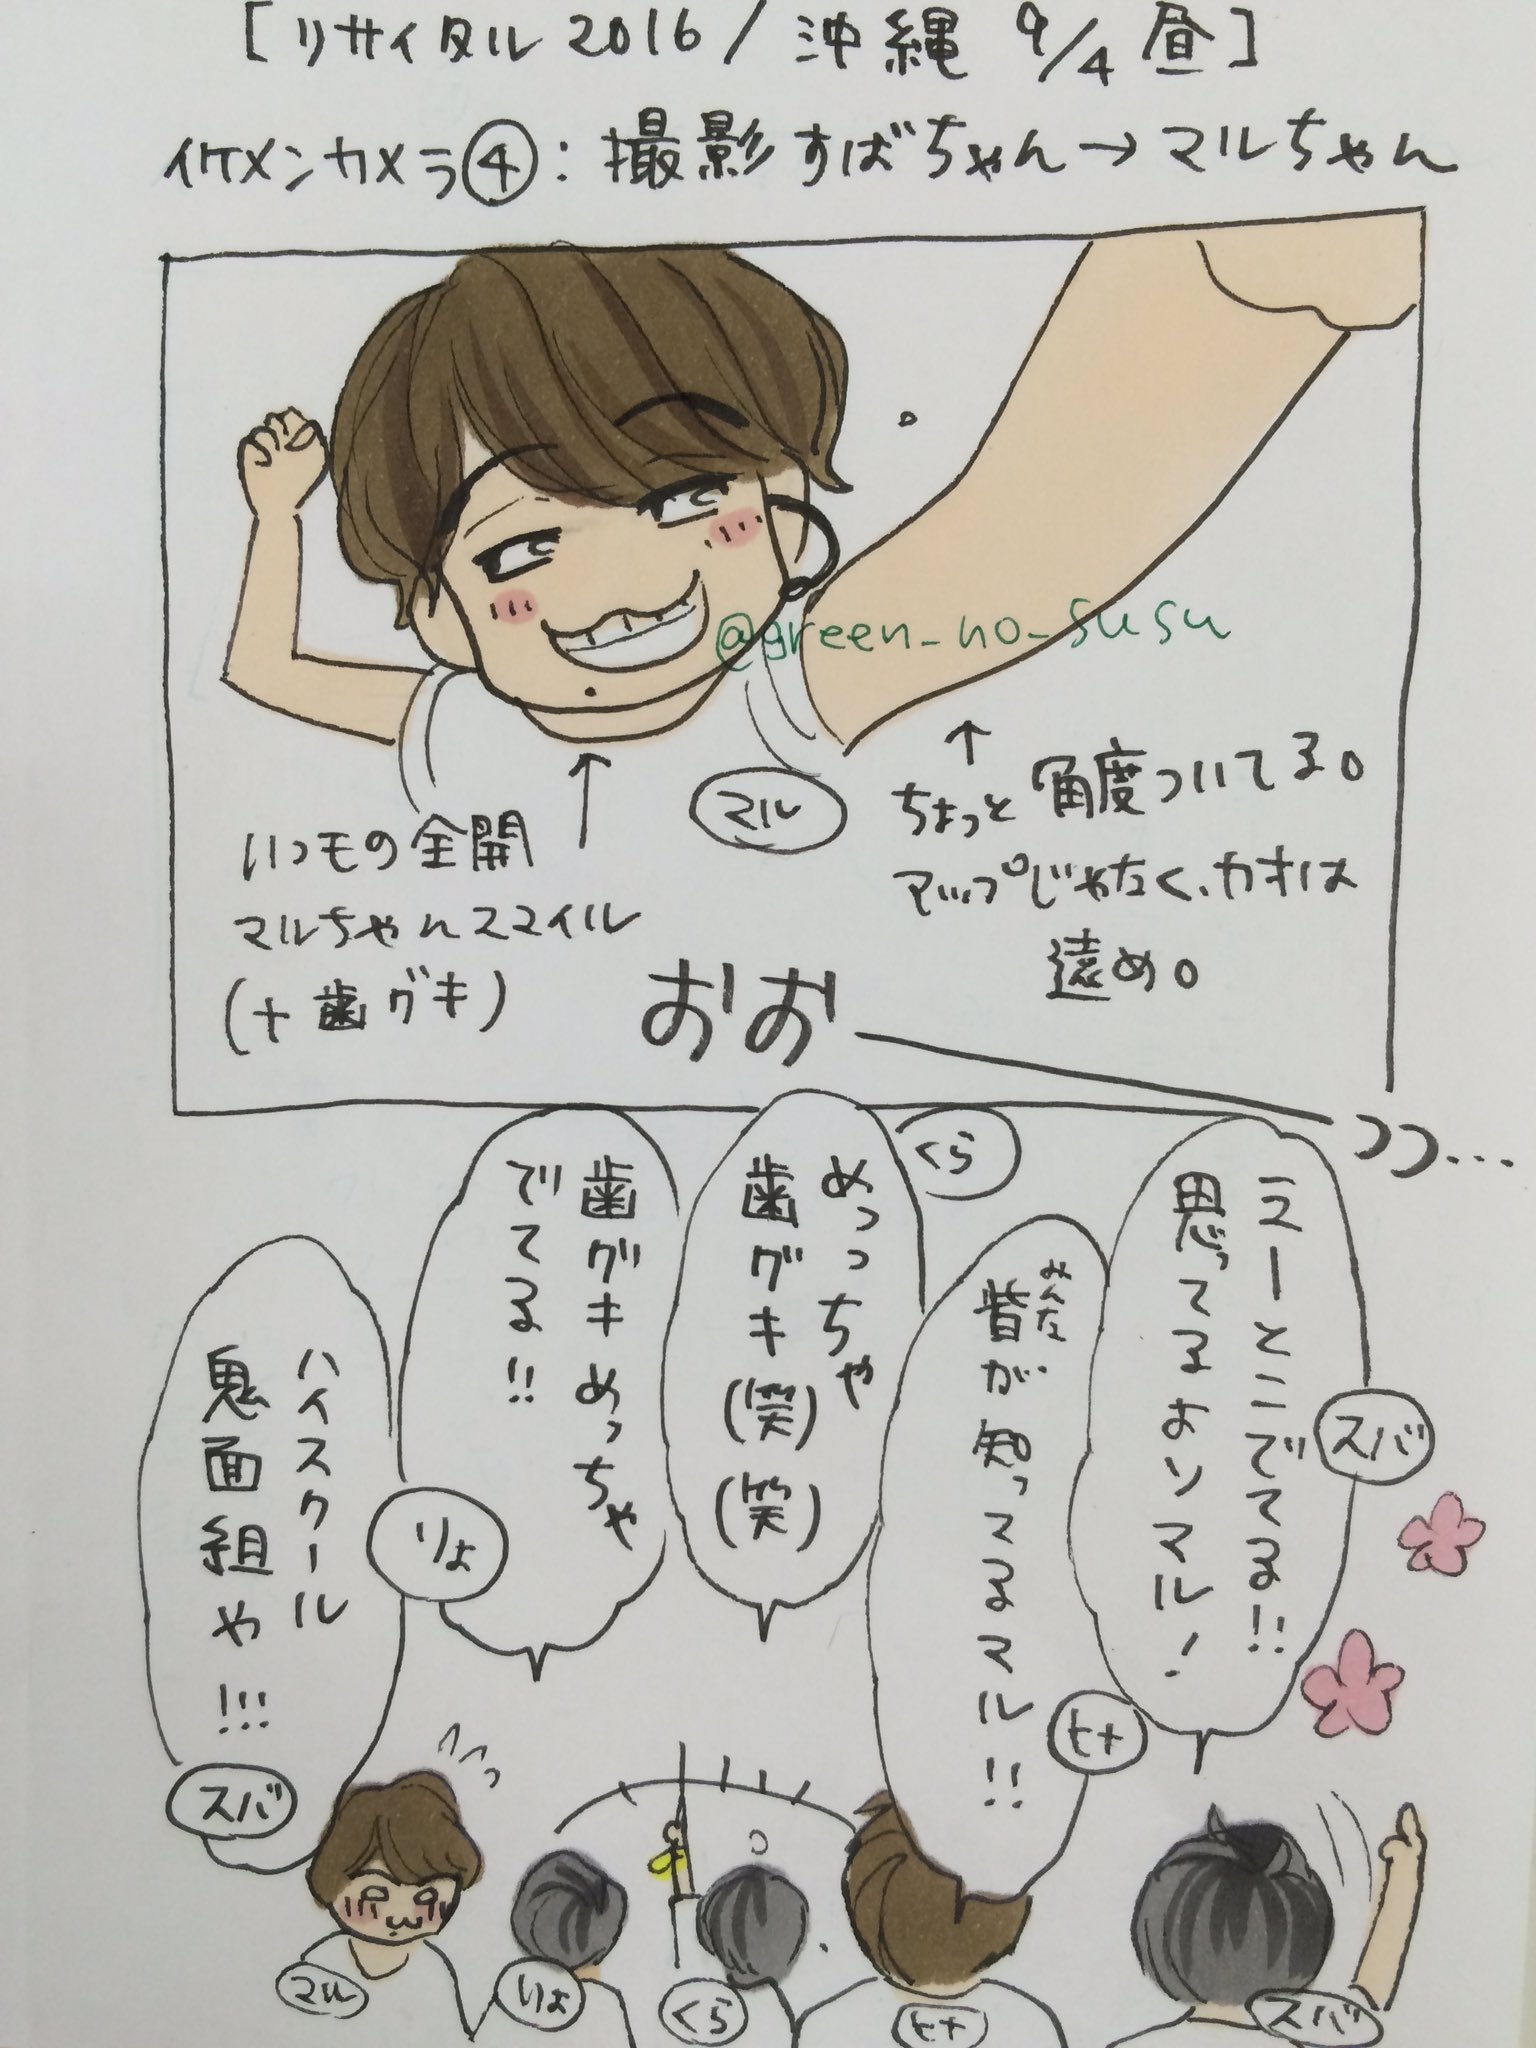 [リサイタル2016/沖縄 9/4 昼]
イケメンカメラ④：撮影すばちゃん→マルちゃん
@green_no_susu
↑
ちょっと角度ついてる。
アップじゃなく、カオは
遠め。
マル
↑
いつもの全開
マルちゃんスマイル
(+歯グキ)
おおーっっ…
ええとこでてる!!
思ってるよりマル!
スバ
皆が知ってるマル!!
みんな
ヒナ
めっっちゃ
歯グキ(笑)(笑)
くら
歯グキめっちゃ
でてる!!
りょ
ハイスクール
鬼面組や!!!
スバ
マル
りょ
くら
ヒナ
スバ